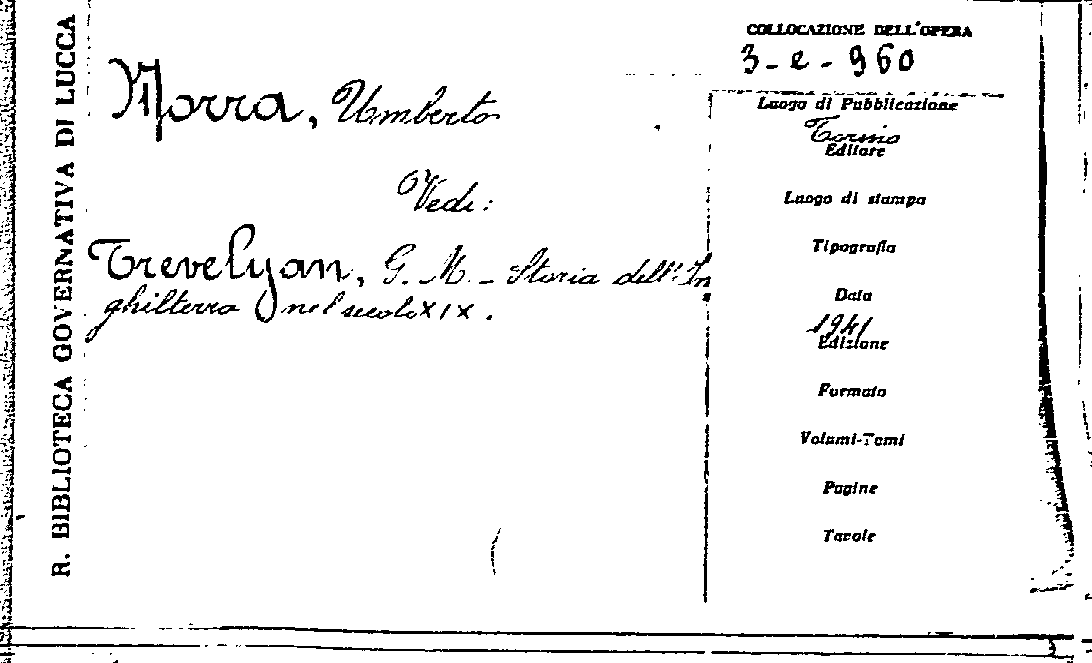 R. BIBLIOTECA GOVERNATIVA DI LUCCA
Morra, Umberto
Vedi:
Trevelyan, G. M. - Storia dell'In
ghilterra nel secolo XIX.
COLLOCAZIONE DELL'OPERA
3-e-960
Luogo di Pubblicazione
Torino
Editore
Luogo di stampa
Tipografia
Data
1941
Edizione
Formato
Volumi-Tomi
Pagine
Tavole